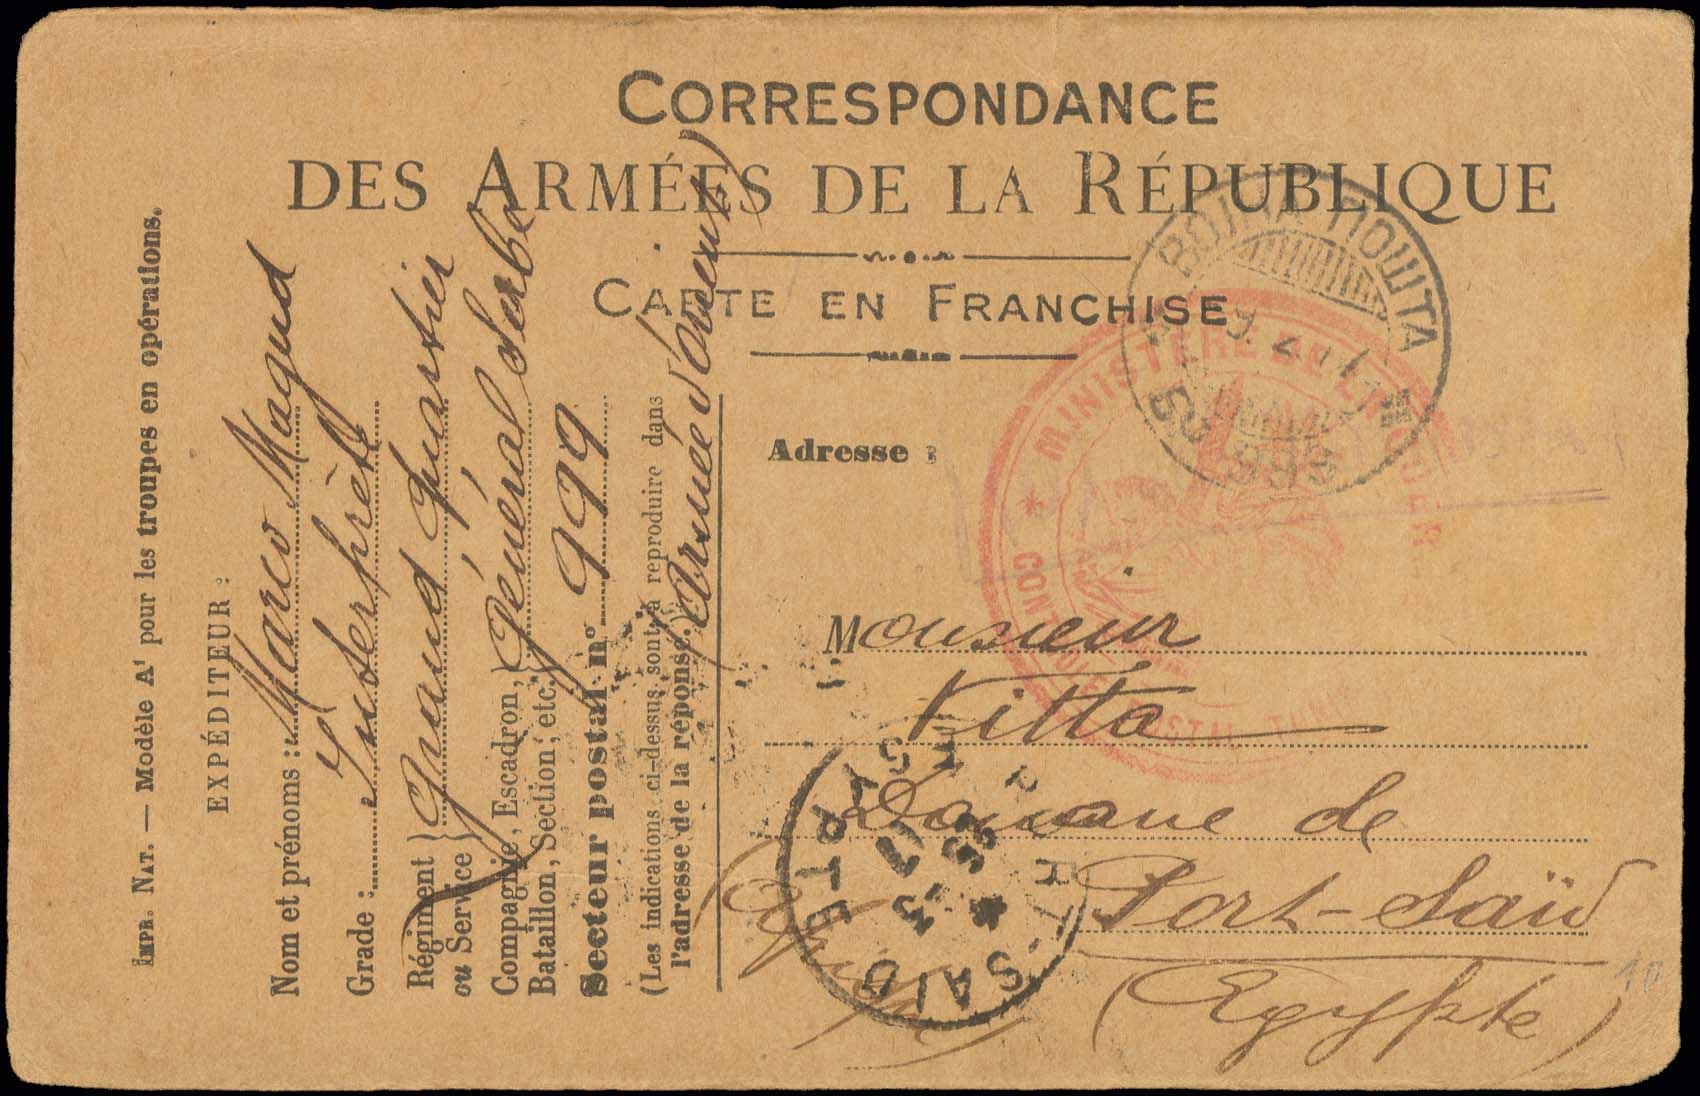 CORRESPONDANCE
DES ARMÉES DE LA RÉPUBLIQUE
CARTE EN FRANCHISE
IMPR. NAT. — Modèle A¹ pour les troupes en opérations.
EXPÉDITEUR :
Nom et prénoms : Marco Magud
Grade : Interprète
Régiment ou Service } Grand Quartier
Compagnie, Escadron, Bataillon, Section, etc. } Général Serbe
Secteur postal n° 999
(Les indications ci-dessus sont à reproduire dans l'adresse de la réponse.)
(Armée d'Orient)
Adresse :
Monsieur
Vitta
Douane de
Port-Saïd
(Egypte)
ВОЈНА ПОШТА
БР. 999
MINISTÈRE DE L'INTÉRIEUR
CONTROLE POSTAL
PORT-SAID